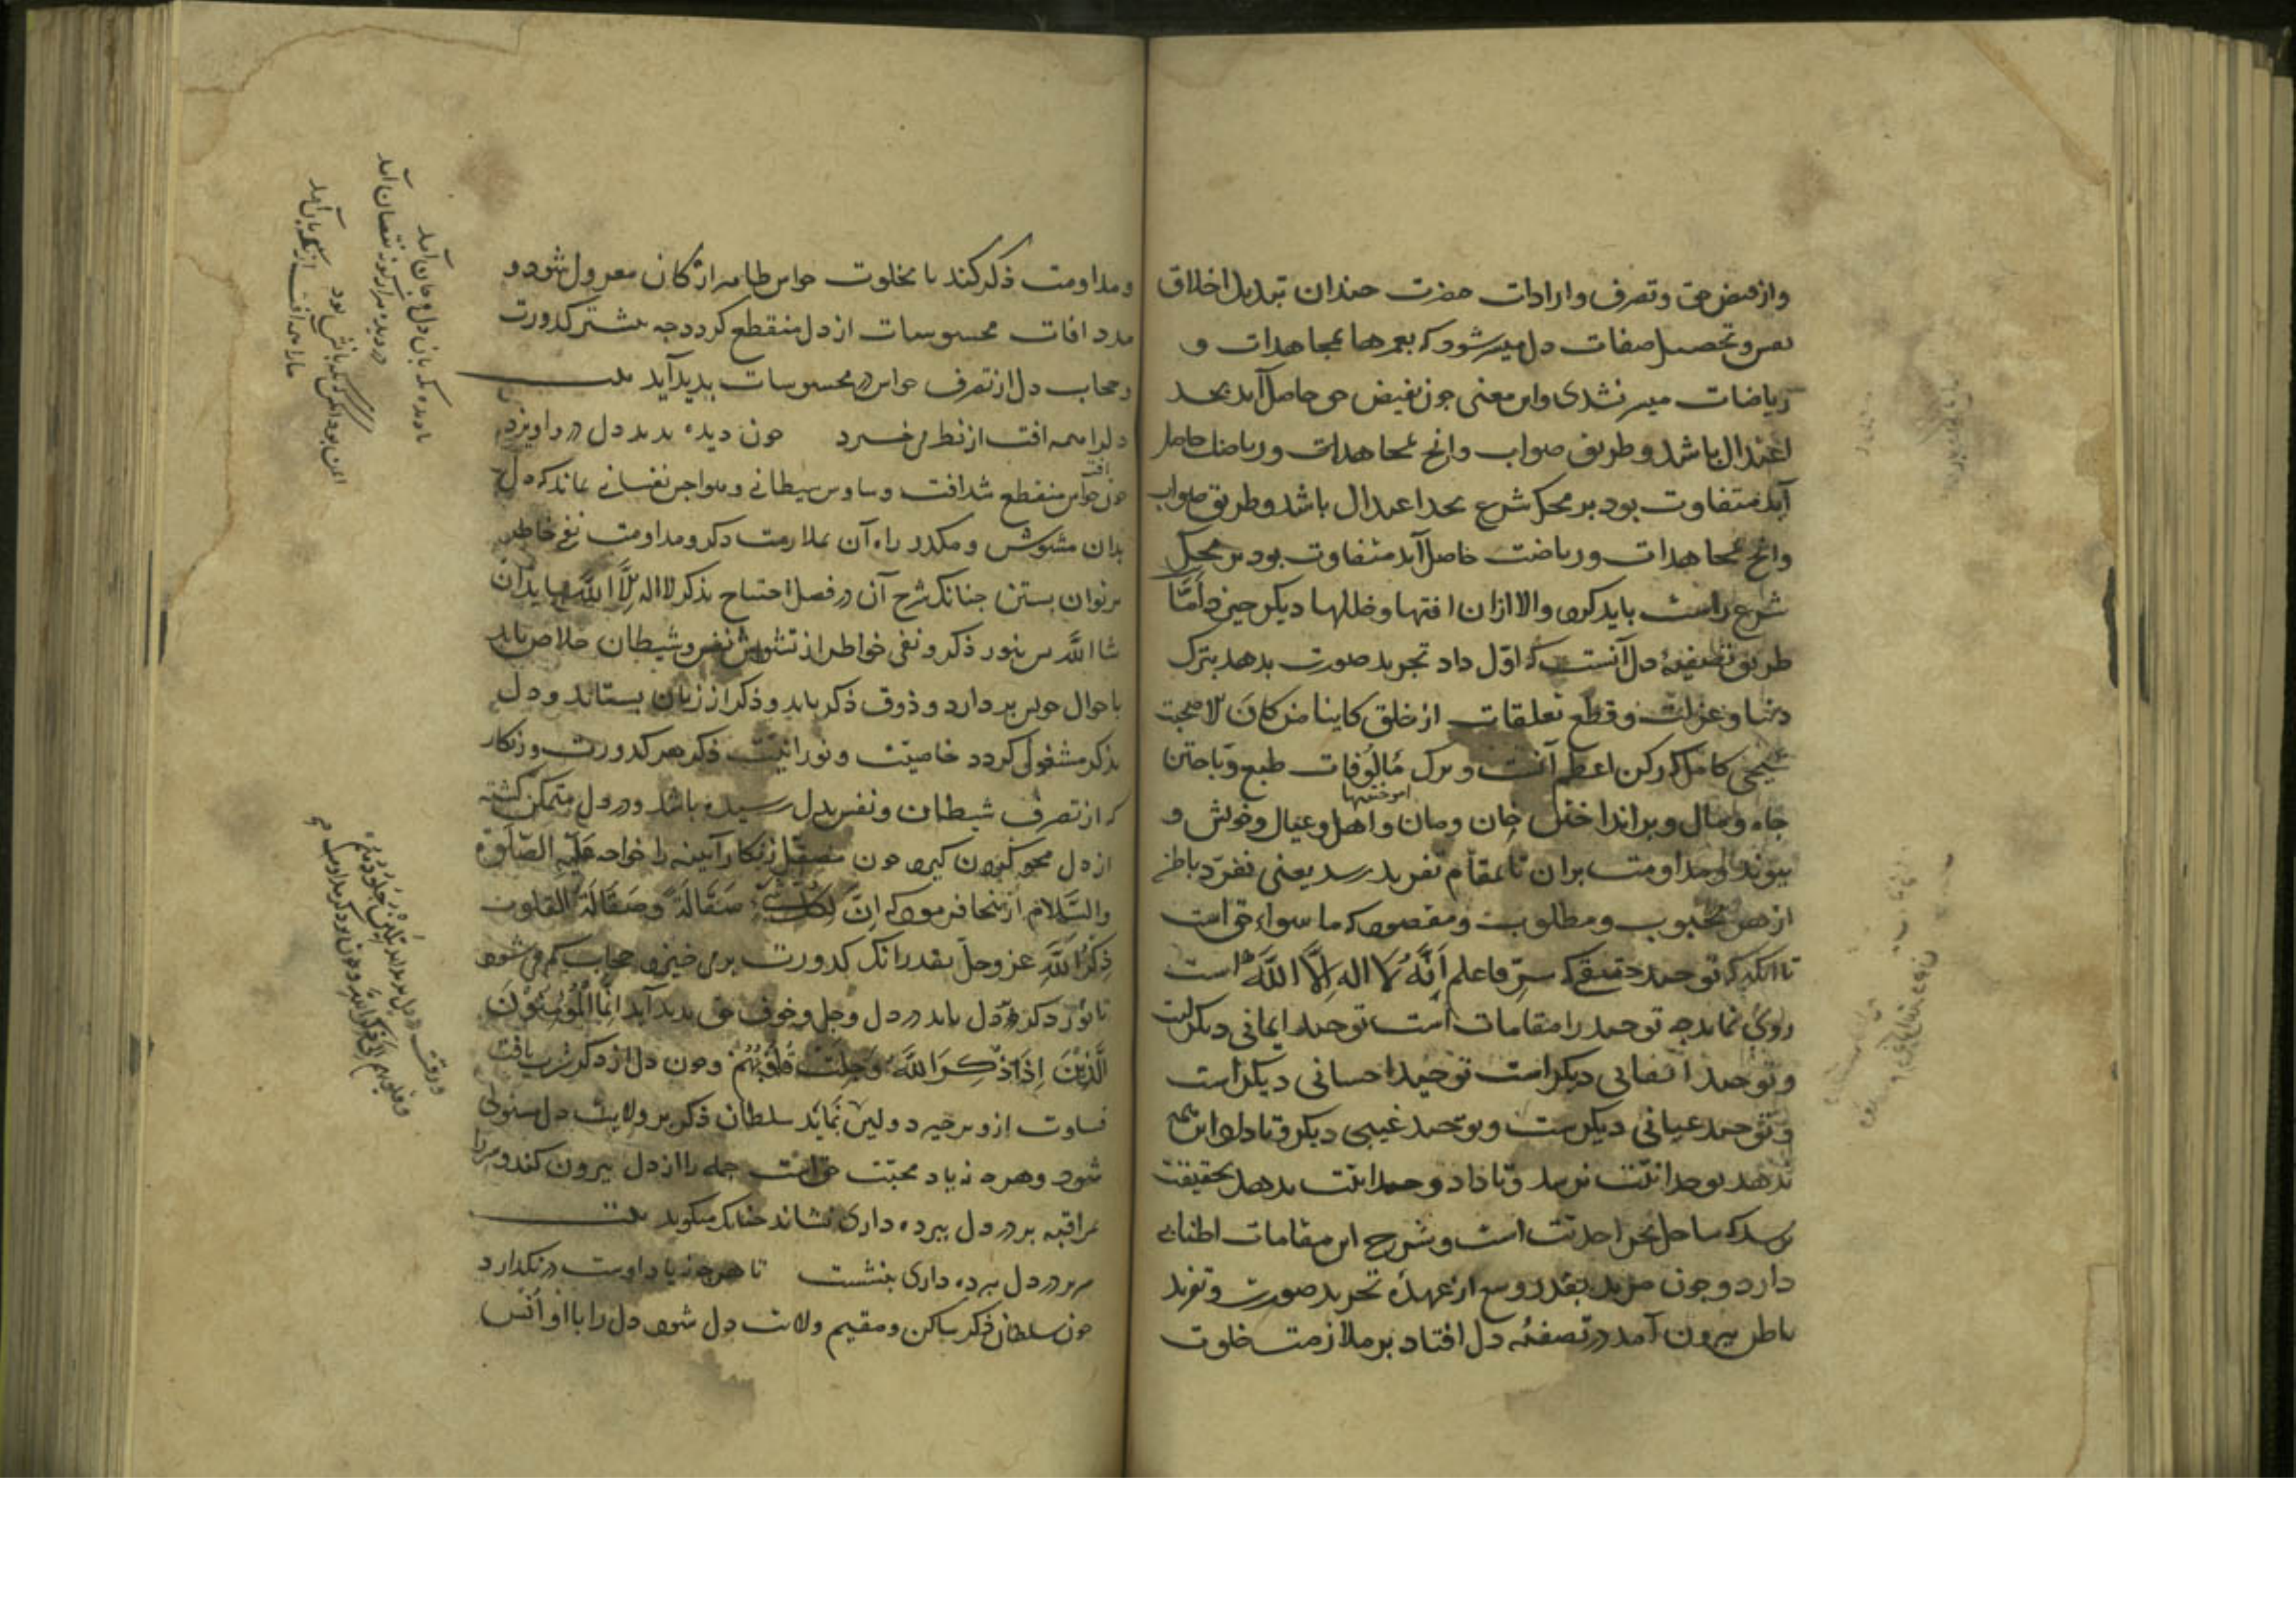 وازفیض حق وتصرف وارادات حضرت چندان تبدیل اخلاق
نفس وتحصیل صفات دل میسر شود که بعمرها بمجاهدات و
ریاضات میسر نشدی واین معنی چون بفیض حق حاصل آید بحد
اعتدال باشد وطریق صواب وانچ بمجاهدات وریاضات حاصل
آید متفاوت بود بر محک شرع بحد اعتدال باشد وطریق صواب
وانچ بمجاهدات وریاضت حاصل آید متفاوت بود بر محک
شرع راست باید کرد والا ازان افتها وخللها دیکر خیزد أمّا
طریق تصفیۀ دل آنست که اوّل داد تجرید صورت بدهد بترک
دنیا وعزلت وقطع تعلقات از خلق کاینا من کان لا صحبت
شیخی کامل که رکن اعظم آنست وترک مألوفات طبع وباختن
اموختنیها
جاه ومال وبر انداختن خان ومان واهل وعیال وخویش و
پیوند ومداومت بران تا بمقام تفرید رسد یعنی تفرّد باطن
از هر محبوب ومطلوب ومقصود که ما سواء حق است
تا انکه که توحید حقیقی که سرّ فاعلم أنَّهُ لا اله إلاَّ اللَّه است
روی نماید چه توحید را مقامات است توحید ایمانی دیکرست
وتوحید ایقانی دیکر است توحید احسانی دیکر است
وتوحید عیانی دیکرست وتوحید غیبی دیکر وتا داد این همه
ندهد بوحدانیّت نرسد وتا داد وحدانیّت بدهد بحقیقت
نرسد که ساحل بحر احدیّت است وشرح این مقامات اطنابی
دارد وچون مرید بقدر وسع از عهدۀ تجرید صورت وتفرید
باطن بیرون آمد در تصفیۀ دل افتاد بر ملازمت خلوت
ومداومت ذکر کند تا بخلوت حواس ظاهر از کان معزول شود و
مدد افات محسوسات از دل منقطع کردد چه بیشتر کدورت
وحجاب دل از تصرف حواس در محسوسات پدید آید بیت
دلرا همه افت از نظر می خیزد چون دیده بدید دل درو اویزد
چون افت حواس منقطع شد افت وساوس شیطانی وهواجس نفسانی بماند که دل
بدان مشوش ومکدر راه آن بملازمت ذکر ومداومت نفی خاطر
بتوان بستن چنانک شرح آن در فصل احتیاج بذکر لا اله إلاَّ اللَّه بیاید ان
شا اللَّه پس بنور ذکر ونفی خواطر از تشویش نفس وشیطان خلاص یابد
باحوال خویش پردارد وذوق ذکر یابد وذکر از زبان بستاند ودل
بذکر مشغول کردد خاصیّت ونورانیّت ذکر هر کدورت وزنکار
که از تصرف شیطان ونفس بدل رسیده باشد ودر دل متمکن کشته
از دل محو کردن کیرد چون مصقل زنکار آیینه را خواجه علیه الصّلوة
والسّلام از اینجا فرمود که إنّ لِکلّ شیءٍ صَقَالَةٌ وصَقَالَةُ القلوب
ذِکرُ اللَّهِ عز وجلّ بقدر انک کدورت برمی خیزد وحجاب کم می شود
تا نور ذکر در دل یابد در دل وجل وخوف حق پدید آید إنّما المُؤمِنُونَ
الَّذِینَ إِذَا ذُکِرَ اللَّهُ وَجِلَتْ قُلُوبُهُمْ وچون دل از ذکر شربت یافت
قساوت ازو برخیزد ولین نماید سلطان ذکر بر ولایت دل مستولی
شود وهر چه نه یاد محبّت حق است جمله را از دل بیرون کند وسر را
مراقبه بر در دل بپرده داری نشاند چنانک میکوید بیت
بر در دل بپرده داری بنشست تا هرچه نه یاد اوست در نکذارد
چون سلطان ذکر ساکن ومقیم ولایت دل شود دل را با او اُنس
تا دیده که بان دل وجان آمد
در دیده مرا زکریه نقصان آمد